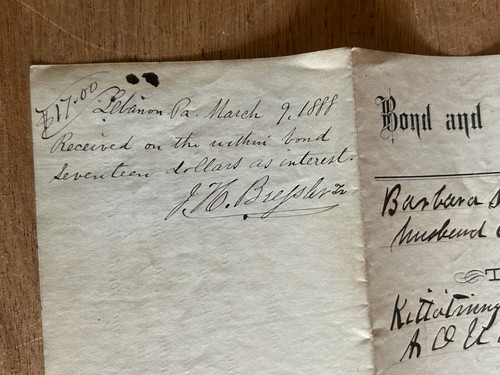 $17.00
Lebanon Pa. March 9, 1888
Received on the within bond
Seventeen dollars as interest.
J. H. Bressler Tr
Bond and
Barbara
husband
Kittatinny